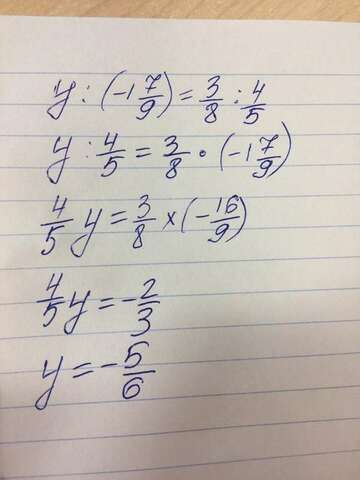 y : (-1 7/9) = 3/8 : 4/5
y : 4/5 = 3/8 • (-1 7/9)
4/5 y = 3/8 × (-16/9)
4/5 y = -2/3
y = -5/6